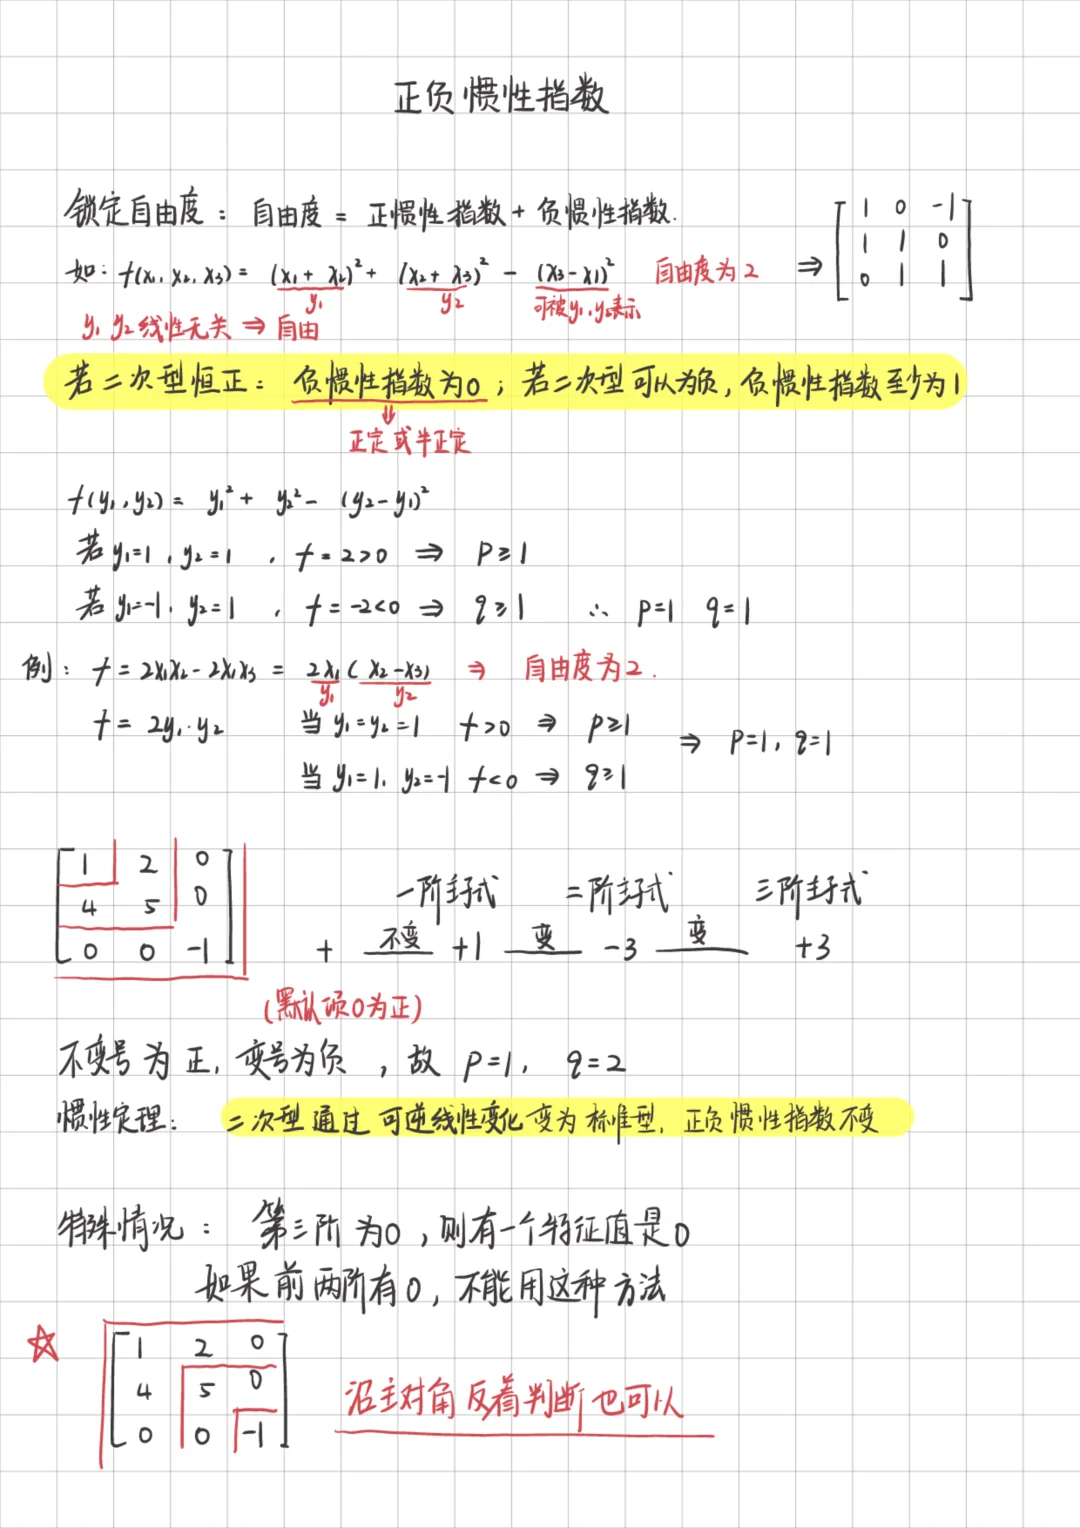 正负惯性指数
锁定自由度： 自由度 = 正惯性指数 + 负惯性指数.
如: f(x₁, x₂, x₃) = (x₁ + x₂)² + (x₂ + x₃)² - (x₃ - x₁)² 自由度为2 ⇒ [1 0 -1
1 1 0
0 1 1]
y₁ y₂ 可被y₁, y₂表示
y₁ y₂线性无关 ⇒ 自由
若二次型恒正： 负惯性指数为0 ; 若二次型可以为负, 负惯性指数至少为1
⇓
正定或半正定
f(y₁, y₂) = y₁² + y₂² - (y₂ - y₁)²
若 y₁=1, y₂=1 , f = 2>0 ⇒ p≥1
若 y₁=-1, y₂=1 , f = -2<0 ⇒ q≥1 ∴ p=1 q=1
例: f = 2x₁x₂ - 2x₁x₃ = 2x₁(x₂-x₃) ⇒ 自由度为2.
y₁ y₂
f = 2y₁·y₂ 当 y₁=y₂=1 f>0 ⇒ p≥1
⇒ p=1, q=1
当 y₁=1, y₂=-1 f<0 ⇒ q≥1
[1 2 0
4 5 0
0 0 -1]
一阶主子式 二阶主子式 三阶主子式
+ 不变 +1 变 -3 变 +3
(默认项0为正)
不变号为正, 变号为负 , 故 p=1, q=2
惯性定理: 二次型通过可逆线性变化变为标准型, 正负惯性指数不变
特殊情况： 第三阶为0 , 则有一个特征值是0
如果前两阶有0, 不能用这种方法
☆ [1 2 0
4 5 0
0 0 -1]
沿主对角反着判断也可以